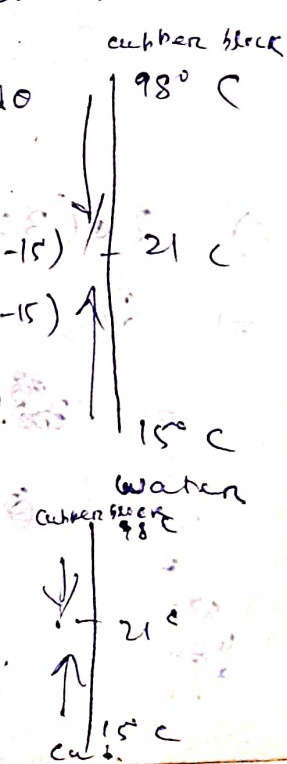 cupper block
10
98° C
-15)
21 C
-15)
15° C
water
cupper block
98 c
21 c
15° C